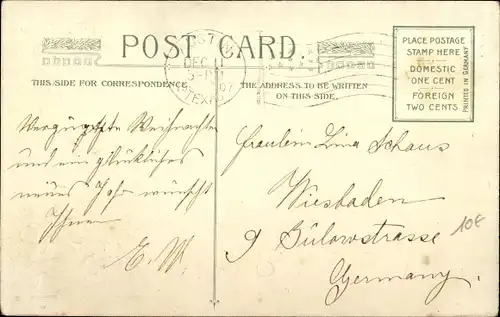 POST CARD.
THIS SIDE FOR CORRESPONDENCE
THE ADDRESS TO BE WRITTEN
ON THIS SIDE.
PLACE POSTAGE
STAMP HERE
DOMESTIC
ONE CENT
FOREIGN
TWO CENTS
PRINTED IN GERMANY
DEC 11
TEX
07
Vergnügte Weihnachten
und ein glückliches
neues Jahr wünscht
Ihnen
E. W.
Fräulein Lina Schaus
Wiesbaden
9 Bülowstrasse
Germany.
10€